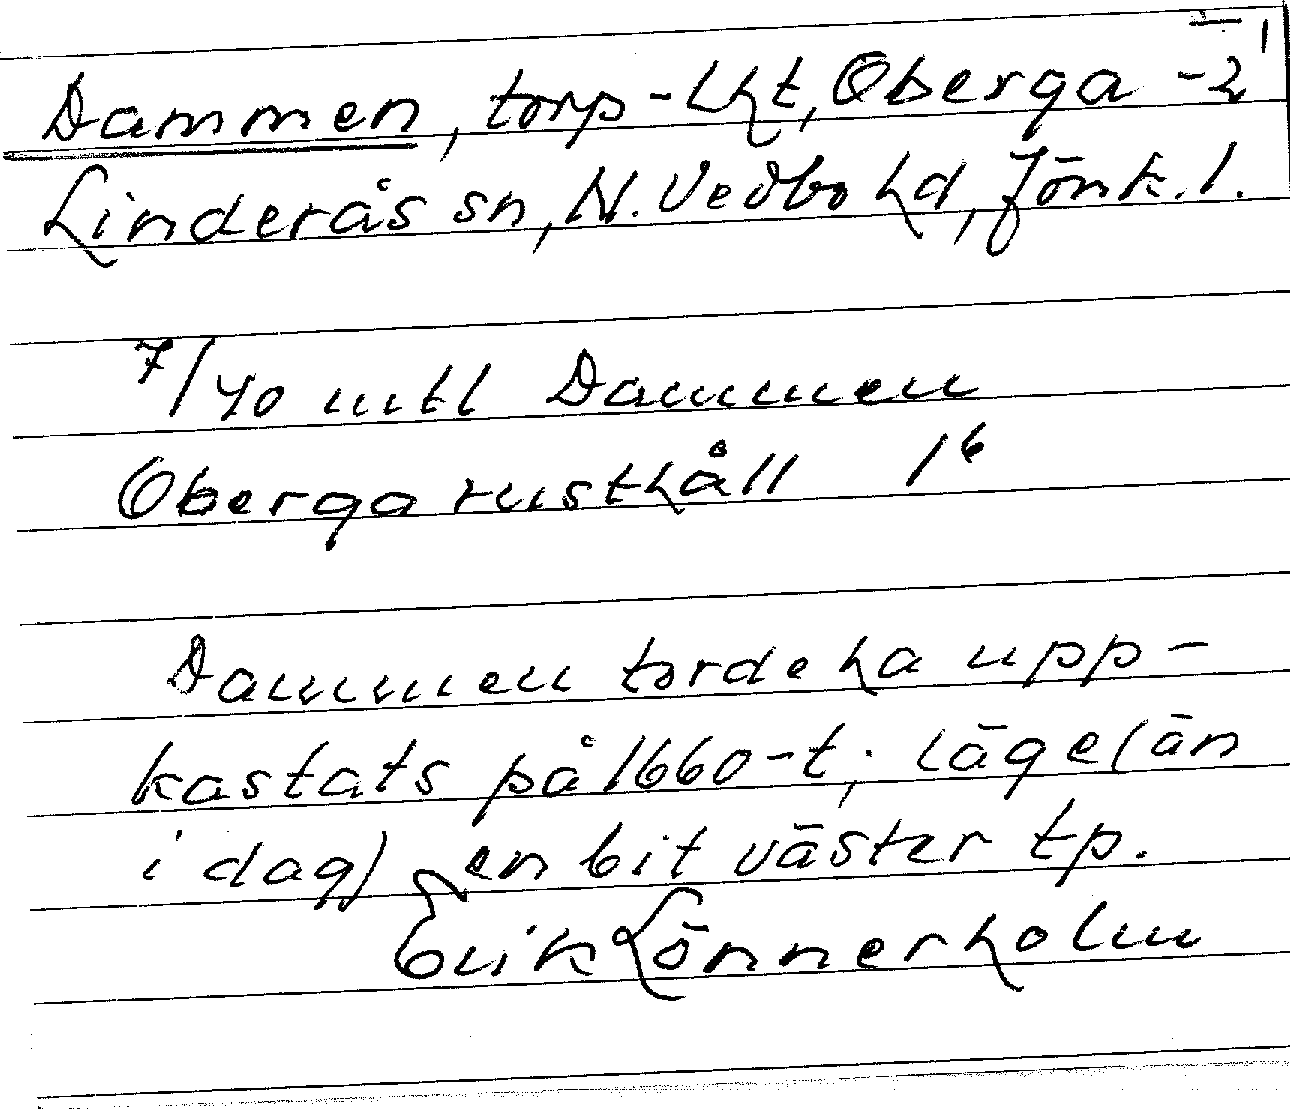 Dammen, torp-lht, Oberga -2 1
Linderås sn, N. Vedbo hd, Jönk. l.
7/40 mtl Dammen
Oberga rusthåll 1 6
Dammen torde ha upp-
kastats på 1660-t; läge (än
i dag) en bit väster tp.
Erik Lönnerholm